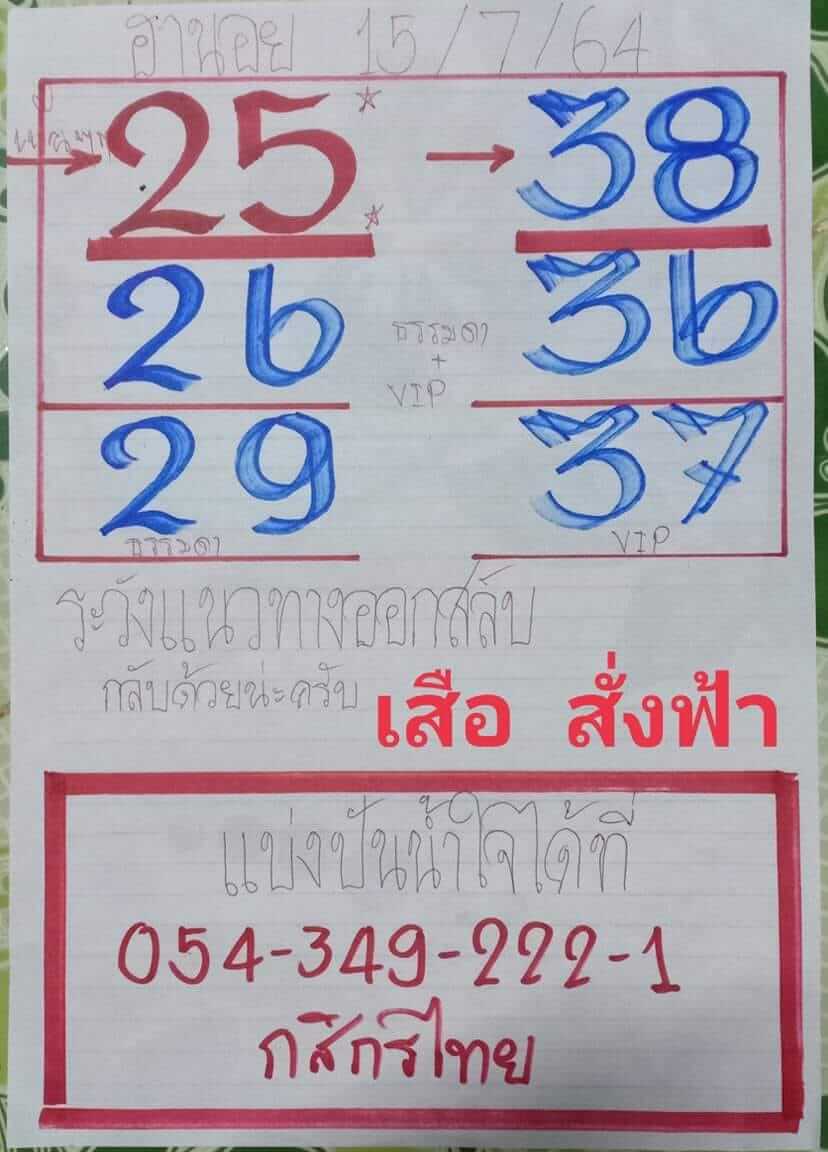 ฮานอย 15/7/64
25 38
26 36
ธรรมดา
+
VIP
29 37
ธรรมดา VIP
ระวังแนวทางออกสลับ
กลับด้วยน่ะครับ
เสือ สั่งฟ้า
แบ่งปันน้ำใจได้ที่
054-349-222-1
กสิกรไทย